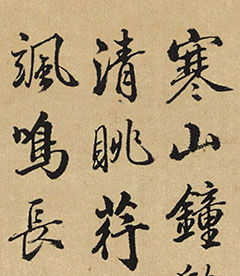 寒山鐘
清眺荇
颯鳴長